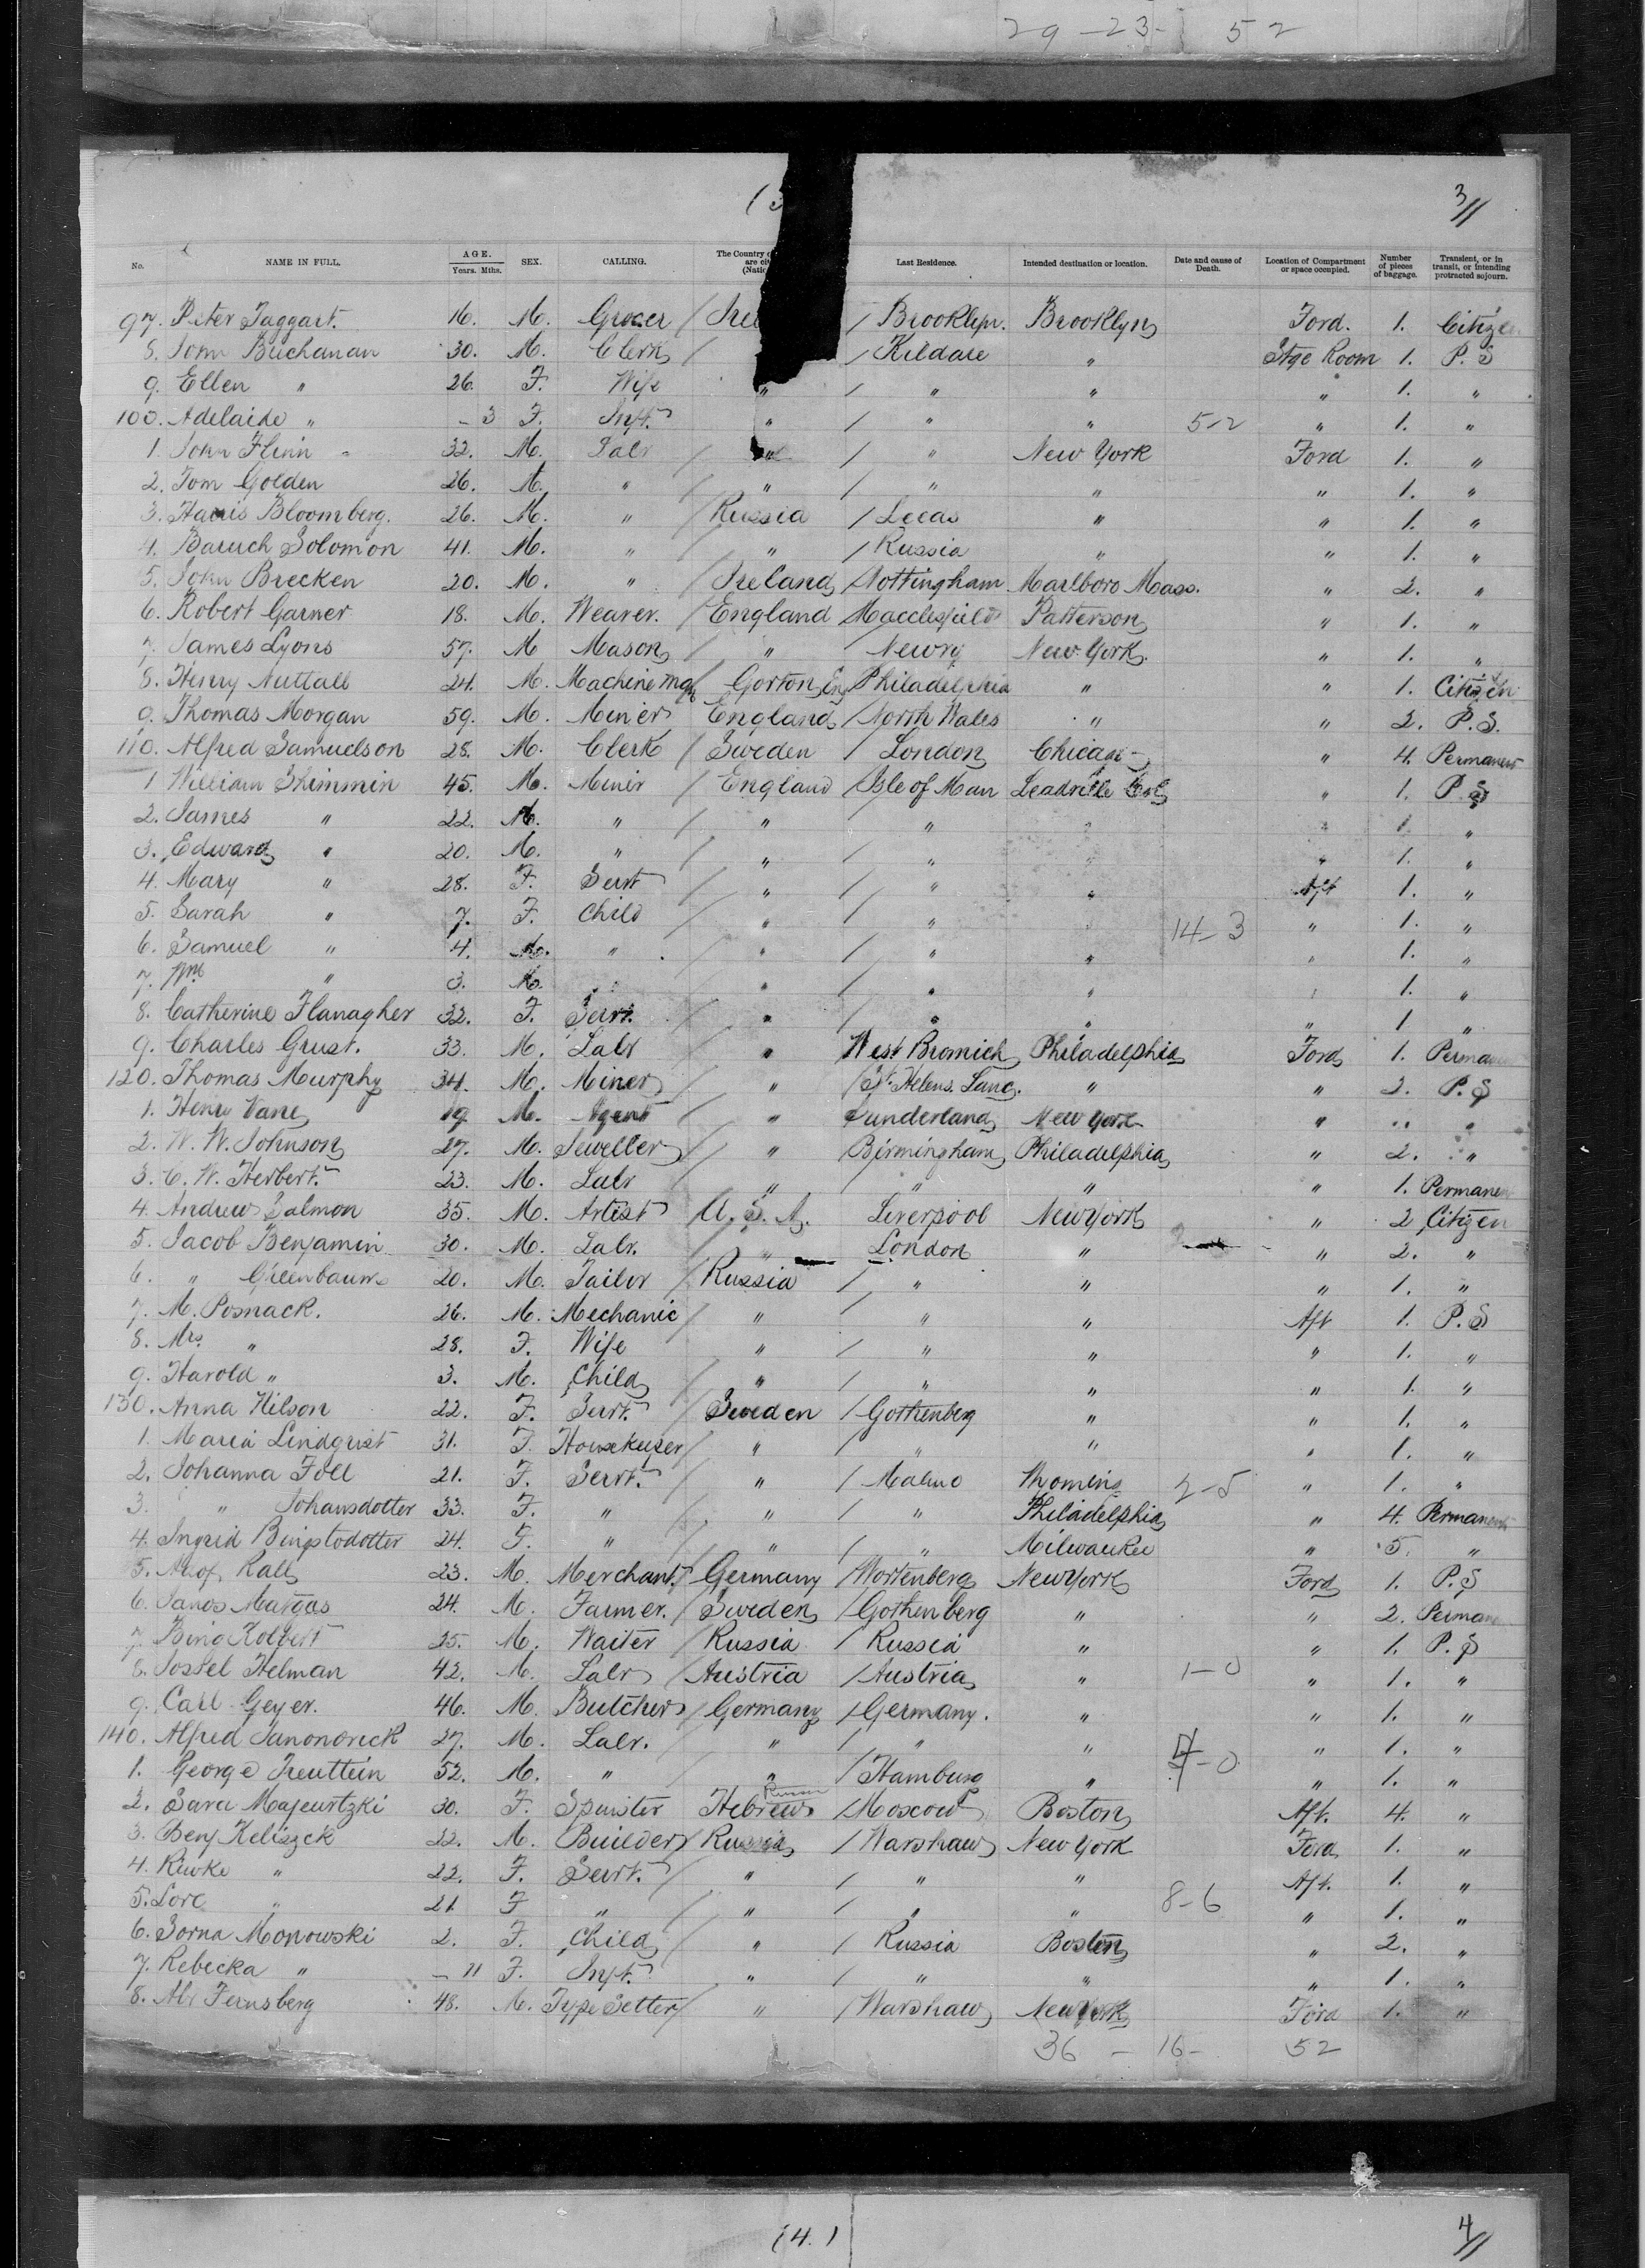 29-23- 52
(3
3/11
No. NAME IN FULL. AGE. Years. Mths. SEX. CALLING. The Country o are cit (Natio Last Residence. Intended destination or location. Date and cause of Death. Location of Compartment or space occupied. Number of pieces of baggage. Transient, or in transit, or intending protracted sojourn.
97. Peter Taggart. 16. M. Grocer / Irel / Brooklyn. Brooklyn Ford. 1. Citizen
8. John Buchanan 30. M. Clerk / / Kildare " Stge Room 1. P. S
9. Ellen " 26. F. Wife " / " " " 1. "
100. Adelaide " - 3 F. Inft. " / " " 5-2 " 1. "
1. John Flinn 32. M. Labr / " / " New York Ford 1. "
2. Tom Golden 26. M. " / " / " " " 1. "
3. Harris Bloomberg. 26. M. " / Russia / Leeds " " 1. "
4. Baruch Solomon 41. M. " " / Russia " " 1. "
5. John Brecken 20. M. " / Ireland / Nottingham Marlboro Mass. " 2. "
6. Robert Garner 18. M. Weaver. / England / Macclesfield Patterson " 1. "
7. James Lyons 57. M Mason / " / Newry New York. " 1. "
8. Henry Nuttall 24. M. Machine mgr Gorton Eng Philadelphia " " 1. Citizen
9. Thomas Morgan 59. M. Miner England / North Wales " " 2. P. S.
110. Alfred Samuelson 28. M. Clerk / Sweden / London Chicago " 4. Permanent
1 William Shimmin 45. M. Miner / England / Isle of Man Leadville Col " 1. P. S
2. James " 22. M. " / " / " " " 1 "
3. Edward " 20. M. " / " / " " " 1. "
4. Mary " 28. F. Servt / " / " " Aft 1. "
5. Sarah " 7. F. Child / " / " " 14-3 " 1. "
6. Samuel " 4. M. " . " / " " " 1. "
7. Wm " 3. M. " " / " " " 1. "
8. Catherine Flanagher 32. F. Servt. " / " " " 1 "
9. Charles Grust. 33. M. Labr " West Bromich Philadelphia Ford 1. Permanen
120. Thomas Murphy 34. M. Miner " / St. Helens. Lanc. " " 2. P. S
1. Henry Vane 19 M. Agent " Sunderland New York " " "
2. W. W. Johnson 27. M. Jeweller / " / Birmingham Philadelphia " 2. "
3. C. W. Herbert. 23. M. Labr " / " " " 1. Permanen
4. Andrew Salmon 35. M. Artist U. S. A. Liverpool New York " 2 Citizen
5. Jacob Benjamin 30. M. Labr. / " London " " 2. "
6. " Greenbaum 20. M. Tailor / Russia / " " " 1. "
7. M. Posnack. 26. M. Mechanic / " / " " Aft 1. P. S
8. Mrs " 28. F. Wife " / " " " 1. "
9. Harold " 3. M. Child / " / " " " 1. "
130. Anna Nilson 22. F. Servt. / Sweden / Gothenberg " " 1. "
1. Maria Lindqvist 31. F. Housekeeper / " / " " " 1. "
2. Johanna Foll 21. F. Servt. " / Malmo Wyoming 2-5 " 1. "
3. " Johansdotter 33. F. " / " / " Philadelphia " 4. Permanent
4. Ingrid Bingstodotter 24. F. " / " / " Milwaukee " 5. "
5. Rall 23. M. Merchant. / Germany / Wortenberg New York Ford 1. P. S
6. Janos Mattas 24. M. Farmer. / Sweden / Gothenberg " " 2. Permane
7. Kolbert 25. M. Waiter / Russia / Russia " " 1. P. S
8. Jossel Helman 42. M. Labr / Austria / Austria " 1-0 " 1. "
9. Carl Geyer. 46. M. Butcher / Germany / Germany. " " 1. "
140. Alfred Janondreck 27. M. Labr. " / " " " 1. "
1. George Treuttein 52. M. " " / Hamburg " -0 " 1. "
2. Sara Majeurtzki 30. F. Spinster Hebrew Russia / Moscow Boston Aft. 4. "
3. Benj Keliszek 22. M. Builder / Russia / Warshaw New York Ford 1. "
4. Riwke " 22. F. Servt. / " / " " Aft. 1. "
5. Lore " 21 F " / " / " " 8-6 " 1. "
6. Sorna Monowski 2. F. Child " / Russia Boston " 2. "
7. Rebecka " - 11 F. Inft. " / " " " 1. "
8. Abr Fernsberg 48. M. Type Setter / " / Warshaw New York Ford 1. "
36 - 16 - 52
(4.)
4/11